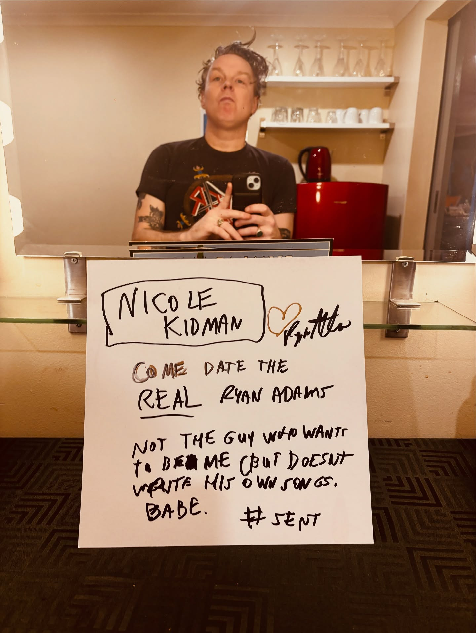 NICOLE
KIDMAN
COME DATE THE
REAL RYAN ADAMS
NOT THE GUY WHO WANTS
TO BE ME (BUT DOESNT
WRITE HIS OWN SONGS.
BABE.
# SENT